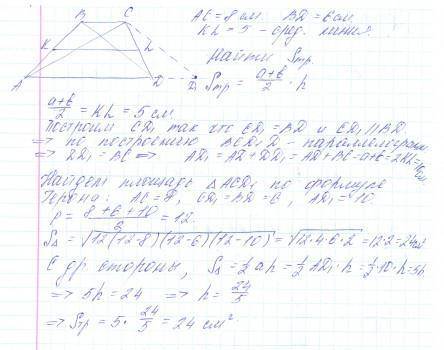 B C
AC = 8 см. BD = 6 см
K L
KL = 5 - сред. линия.
Найти Sтр
A D D₁
Sтр = (a+b)/2 · h
(a+b)/2 = KL = 5 см.
Построим CD₁ так что CD₁ = BD и CD₁ || BD
=> по построению BCD₁D - параллелограмм
=> DD₁ = BC => AD₁ = AD + DD₁ = AD + BC = a+b = 2KL = 10 см
Найдем площадь △ACD₁ по формуле
Герона: AC = 8, CD₁ = BD = 6, AD₁ = 10.
p = (8 + 6 + 10)/2 = 12.
S△ = √12(12-8)(12-6)(12-10) = √12·4·6·2 = 12·2 = 24 см²
С др стороны, S△ = ½ah = ½AD₁·h = ½·10·h = 5h
=> 5h = 24 => h = 24/5
=> Sтр = 5 · 24/5 = 24 см²